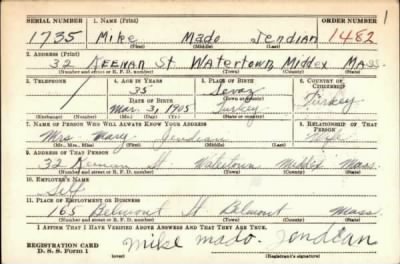 SERIAL NUMBER 1. NAME (Print) ORDER NUMBER 1
1735 Mike Mado Jendian 1482
(First) (Middle) (Last)
2. ADDRESS (Print)
32 KEENAN St WATERTOWN MIDDEX MASS.
(Number and street or R. F. D. number) (Town) (County) (State)
3. TELEPHONE 4. AGE IN YEARS 5. PLACE OF BIRTH 6. COUNTRY OF CITIZENSHIP
35 Sevaz
DATE OF BIRTH (Town or county) Turkey
Mar. 3, 1905 Turkey
(Exchange) (Number) (Mo.) (Day) (Yr.) (State or country)
7. NAME OF PERSON WHO WILL ALWAYS KNOW YOUR ADDRESS 8. RELATIONSHIP OF THAT PERSON
Mrs. Mary Jendian Wife
(Mr., Mrs., Miss) (First) (Middle) (Last)
9. ADDRESS OF THAT PERSON
32 Keenan St. Watertown Middex Mass.
(Number and street or R. F. D. number) (Town) (County) (State)
10. EMPLOYER'S NAME
Self
11. PLACE OF EMPLOYMENT OR BUSINESS
165 Belmont St Belmont Mass
(Number and street or R. F. D. number) (Town) (County) (State)
I AFFIRM THAT I HAVE VERIFIED ABOVE ANSWERS AND THAT THEY ARE TRUE.
REGISTRATION CARD
D. S. S. Form 1 mike mado. Jendian
(over) (Registrant's signature)